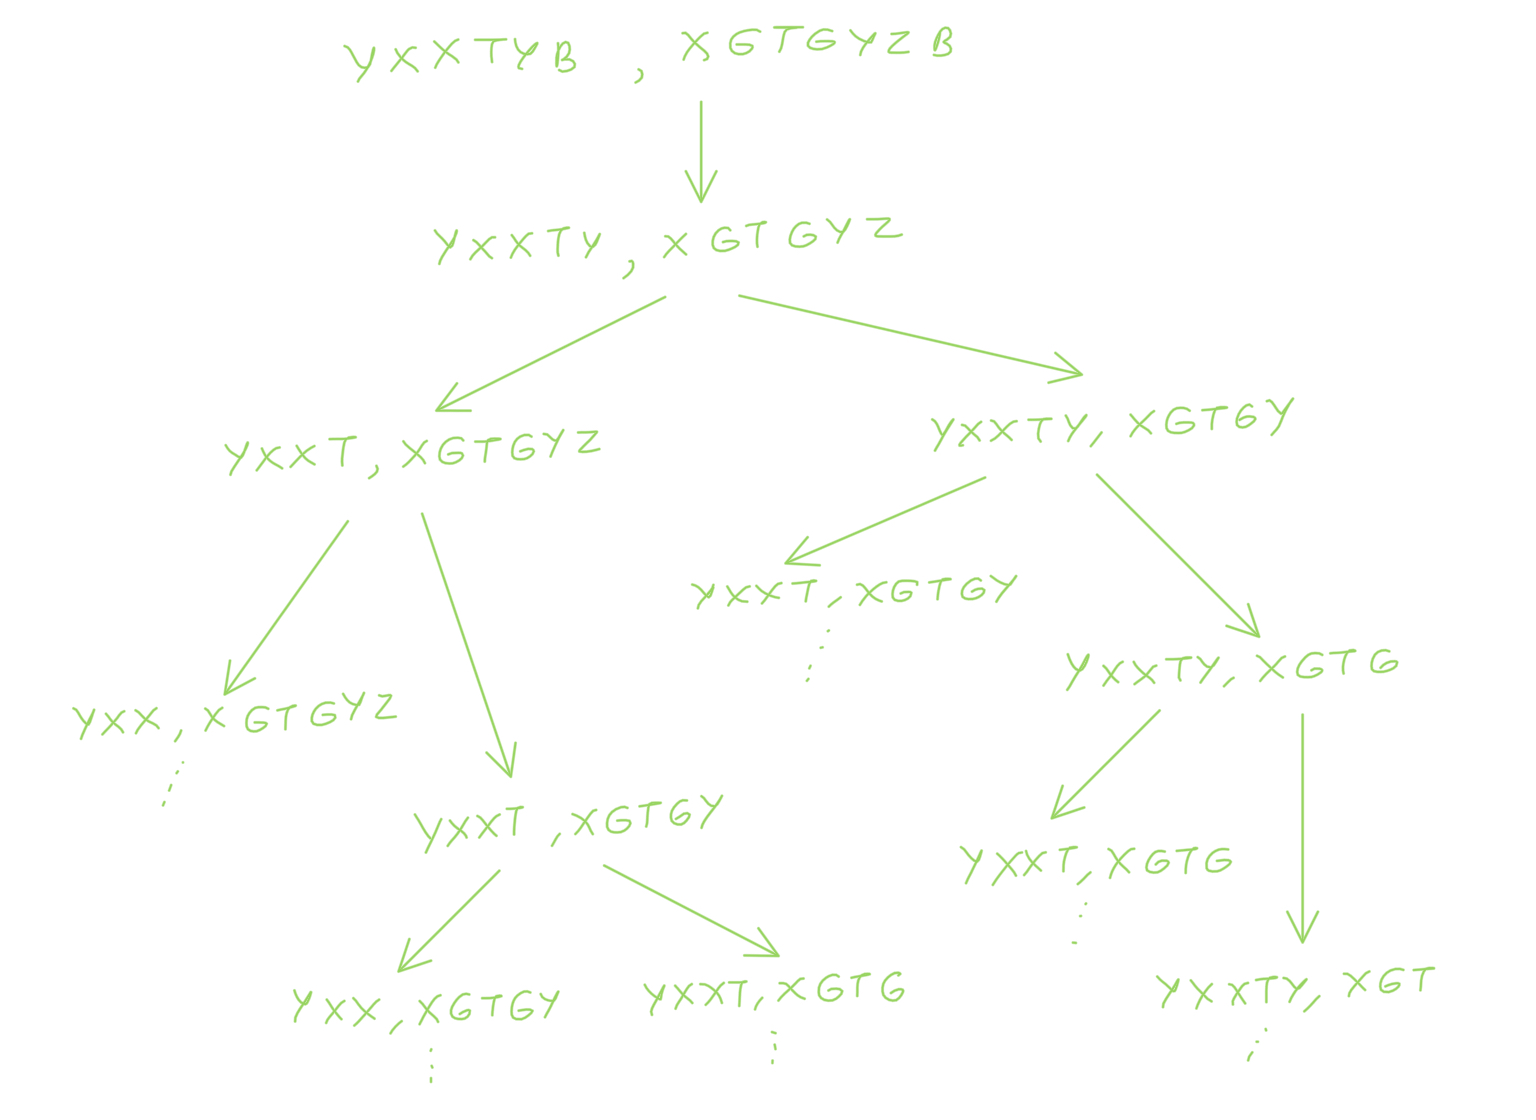 YXXTYB , XGTGYZB
YXXTY , XGTGYZ
YXXT , XGTGYZ
YXXTY, XGTGY
YXXT, XGTGY
YXXTY, XGTG
YXX, XGTGYZ
YXXT , XGTGY
YXXT, XGTG
YXX, XGTGY
YXXT, XGTG
YXXTY, XGT